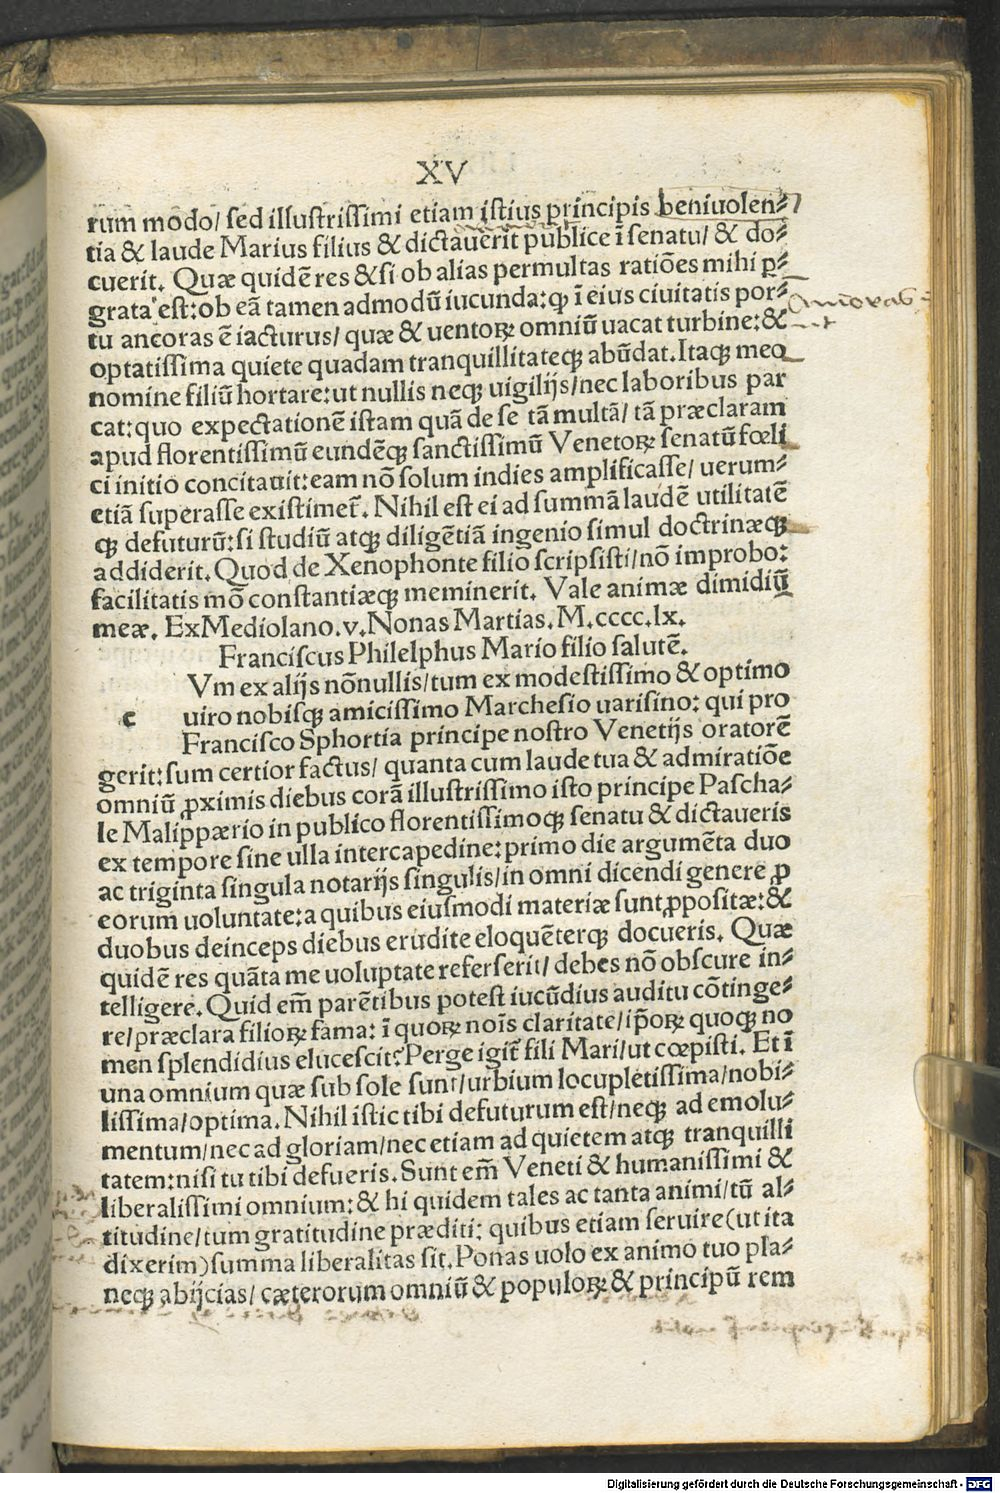 XV
rum modo/ sed illustrissimi etiam istius principis beniuolen⸗
tia & laude Marius filius & dictauerit publice ĩ senatu/ & do⸗
cuerit. Quæ quidẽ res & si ob alias permultas ratiões mihi ꝑ⸗
grata est: ob eã tamen admodũ iucunda: ꝙ ĩ eius ciuitatis por⸗
tu ancoras ẽ iacturus/ quæ & uentoꝝ omniũ uacat turbine: &
optatissima quiete quadam tranquillitateqꝫ abũdat. Itaqꝫ meo
nomine filiũ hortare: ut nullis neqꝫ uigilijs/ nec laboribus par
cat: quo expectationẽ istam quã de se tã multã/ tã præclaram
apud florentissimũ eundẽqꝫ sanctissimũ Venetoꝝ senatũ fœli
ci initio concitauit: eam nõ solum indies amplificasse/ uerum⸗
etiã superasse existimet̃. Nihil est ei ad summã laudẽ utilitatẽ
qꝫ defuturũ: si studiũ atqꝫ diligẽtiã ingenio simul doctrinæqꝫ
addiderit. Quod de Xenophonte filio scripsisti/ nõ improbo:
facilitatis mõ constantiæqꝫ meminerit. Vale animæ dimidiũ
meæ. Ex Mediolano. v. Nonas Martias. M.cccc.lx.
Franciscus Philelphus Mario filio salutẽ.
Vm ex alijs nõnullis/ tum ex modestissimo & optimo
c uiro nobisqꝫ amicissimo Marchesio uarisino: qui pro
Francisco Sphortia principe nostro Venetijs oratorẽ
gerit: sum certior factus/ quanta cum laude tua & admiratiõe
omniũ ꝓximis diebus corã illustrissimo isto principe Pascha⸗
le Malippærio in publico florentissimoqꝫ senatu & dictaueris
ex tempore sine ulla intercapedine: primo die argumẽta duo
ac triginta singula notarijs singulis/ in omni dicendi genere ꝓ
eorum uoluntate: a quibus eiusmodi materiæ sunt ꝓpositæ: &
duobus deinceps diebus erudite eloquẽterqꝫ docueris. Quæ
quidẽ res quãta me uoluptate referserit/ debes nõ obscure in⸗
telligere. Quid em̃ parẽtibus potest iucũdius auditu cõtinge⸗
re/ præclara filioꝝ fama: ĩ quoꝝ noĩs claritate/ ip̃oꝝ quoqꝫ no
men splendidius elucescit? Perge igit̃ fili Mari/ ut cœpisti. Et ĩ
una omnium quæ sub sole sunt/ urbium locupletissima/ nobi⸗
lissima/ optima. Nihil istic tibi defuturum est/ neqꝫ ad emolu⸗
mentum/ nec ad gloriam/ nec etiam ad quietem atqꝫ tranquilli
tatem: nisi tu tibi defueris. Sunt em̃ Veneti & humanissimi &
liberalissimi omnium: & hi quidem tales ac tanta animi/ tũ al⸗
titudine/ tum gratitudine præditi: quibus etiam seruire (ut ita
dixerim) summa liberalitas sit. Ponas uolo ex animo tuo pla⸗
neqꝫ abijcias/ cæterorum omniũ & populoꝝ & principũ rem
Digitalisierung gefördert durch die Deutsche Forschungsgemeinschaft - DFG